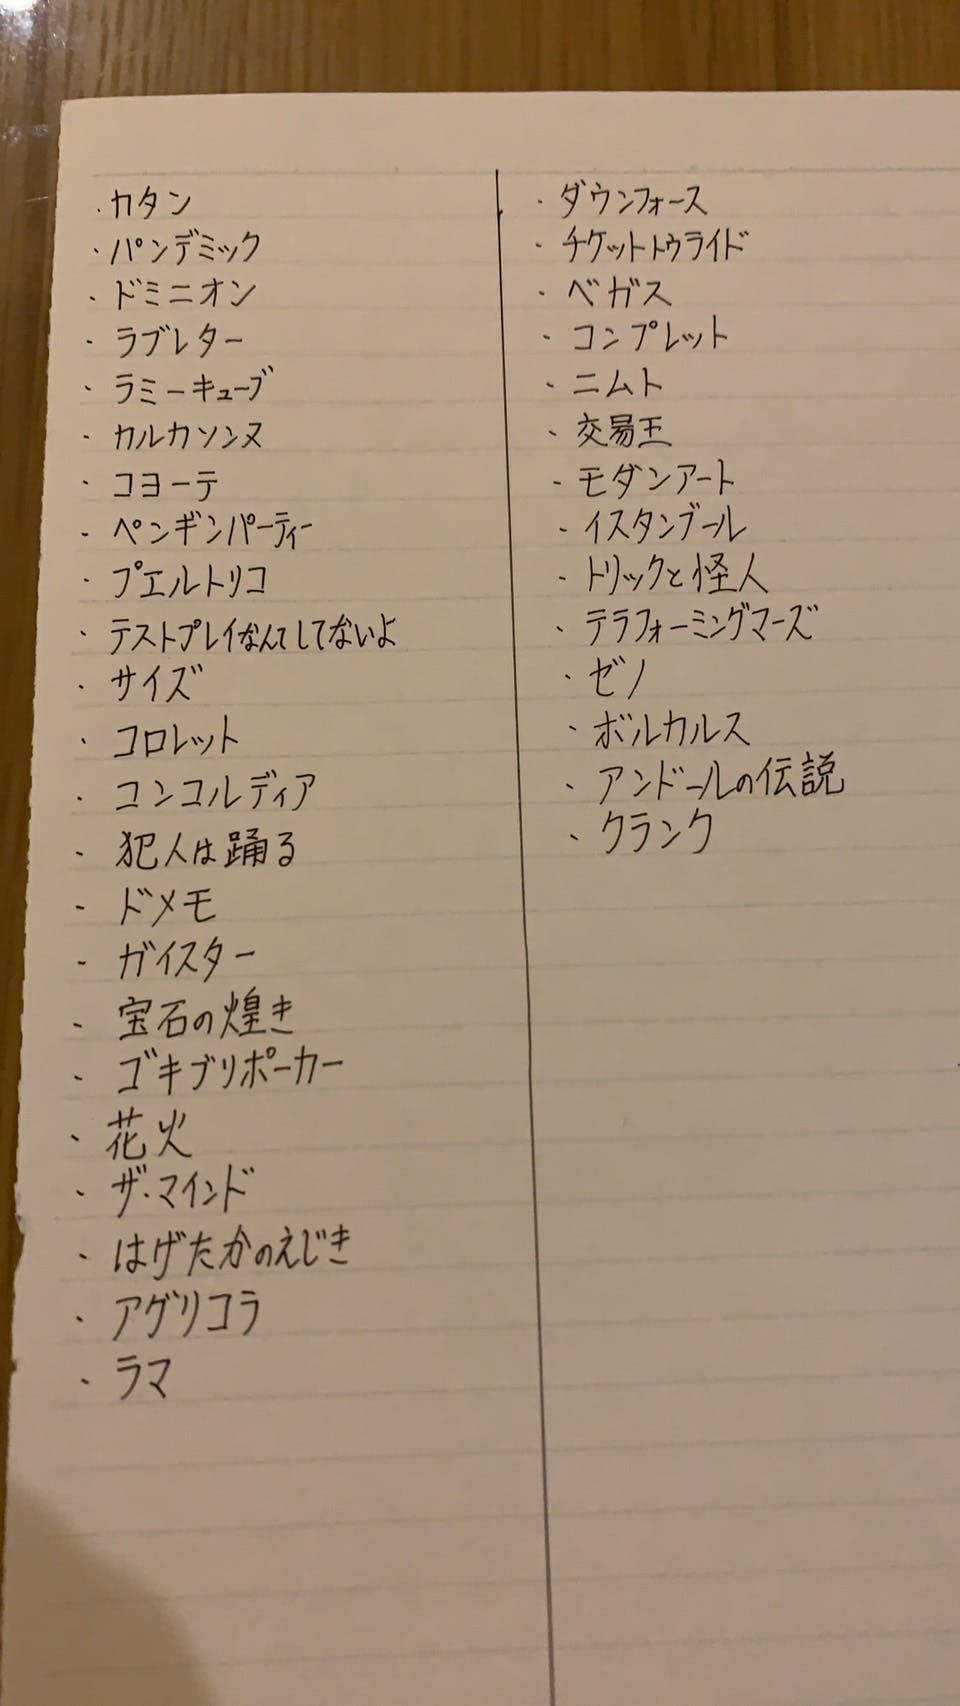 ・カタン
・パンデミック
・ドミニオン
・ラブレター
・ラミーキューブ
・カルカソンヌ
・コヨーテ
・ペンギンパーティー
・プエルトリコ
・テストプレイなんてしてないよ
・サイズ
・コロレット
・コンコルディア
・犯人は踊る
・ドメモ
・ガイスター
・宝石の煌き
・ゴキブリポーカー
・花火
・ザ・マインド
・はげたかのえじき
・アグリコラ
・ラマ
・ダウンフォース
・チケットトゥライド
・ベガス
・コンプレット
・ニムト
・交易王
・モダンアート
・イスタンブール
・トリックと怪人
・テラフォーミングマーズ
・ゼノ
・ボルカルス
・アンドールの伝説
・クランク